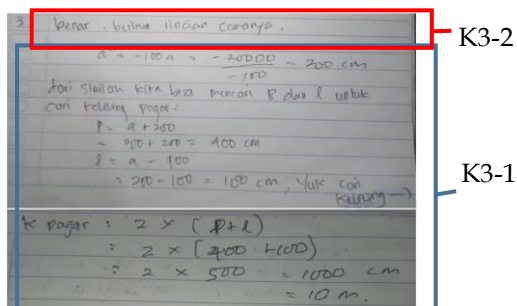 3 benar. berikut rincian caranya.
K3-2
a = -100a = -20000 / -100 = 200 cm
dari sinilah kita bisa mencari P dan l untuk
cari keliling pagar:
P = a + 200
= 200 + 200 = 400 cm
l = a - 100
= 200 - 100 = 100 cm, yuk cari
keliling →
K3-1
K pagar : 2 × (P+l)
: 2 × (400 +100)
: 2 × 500 = 1000 cm
= 10 m.